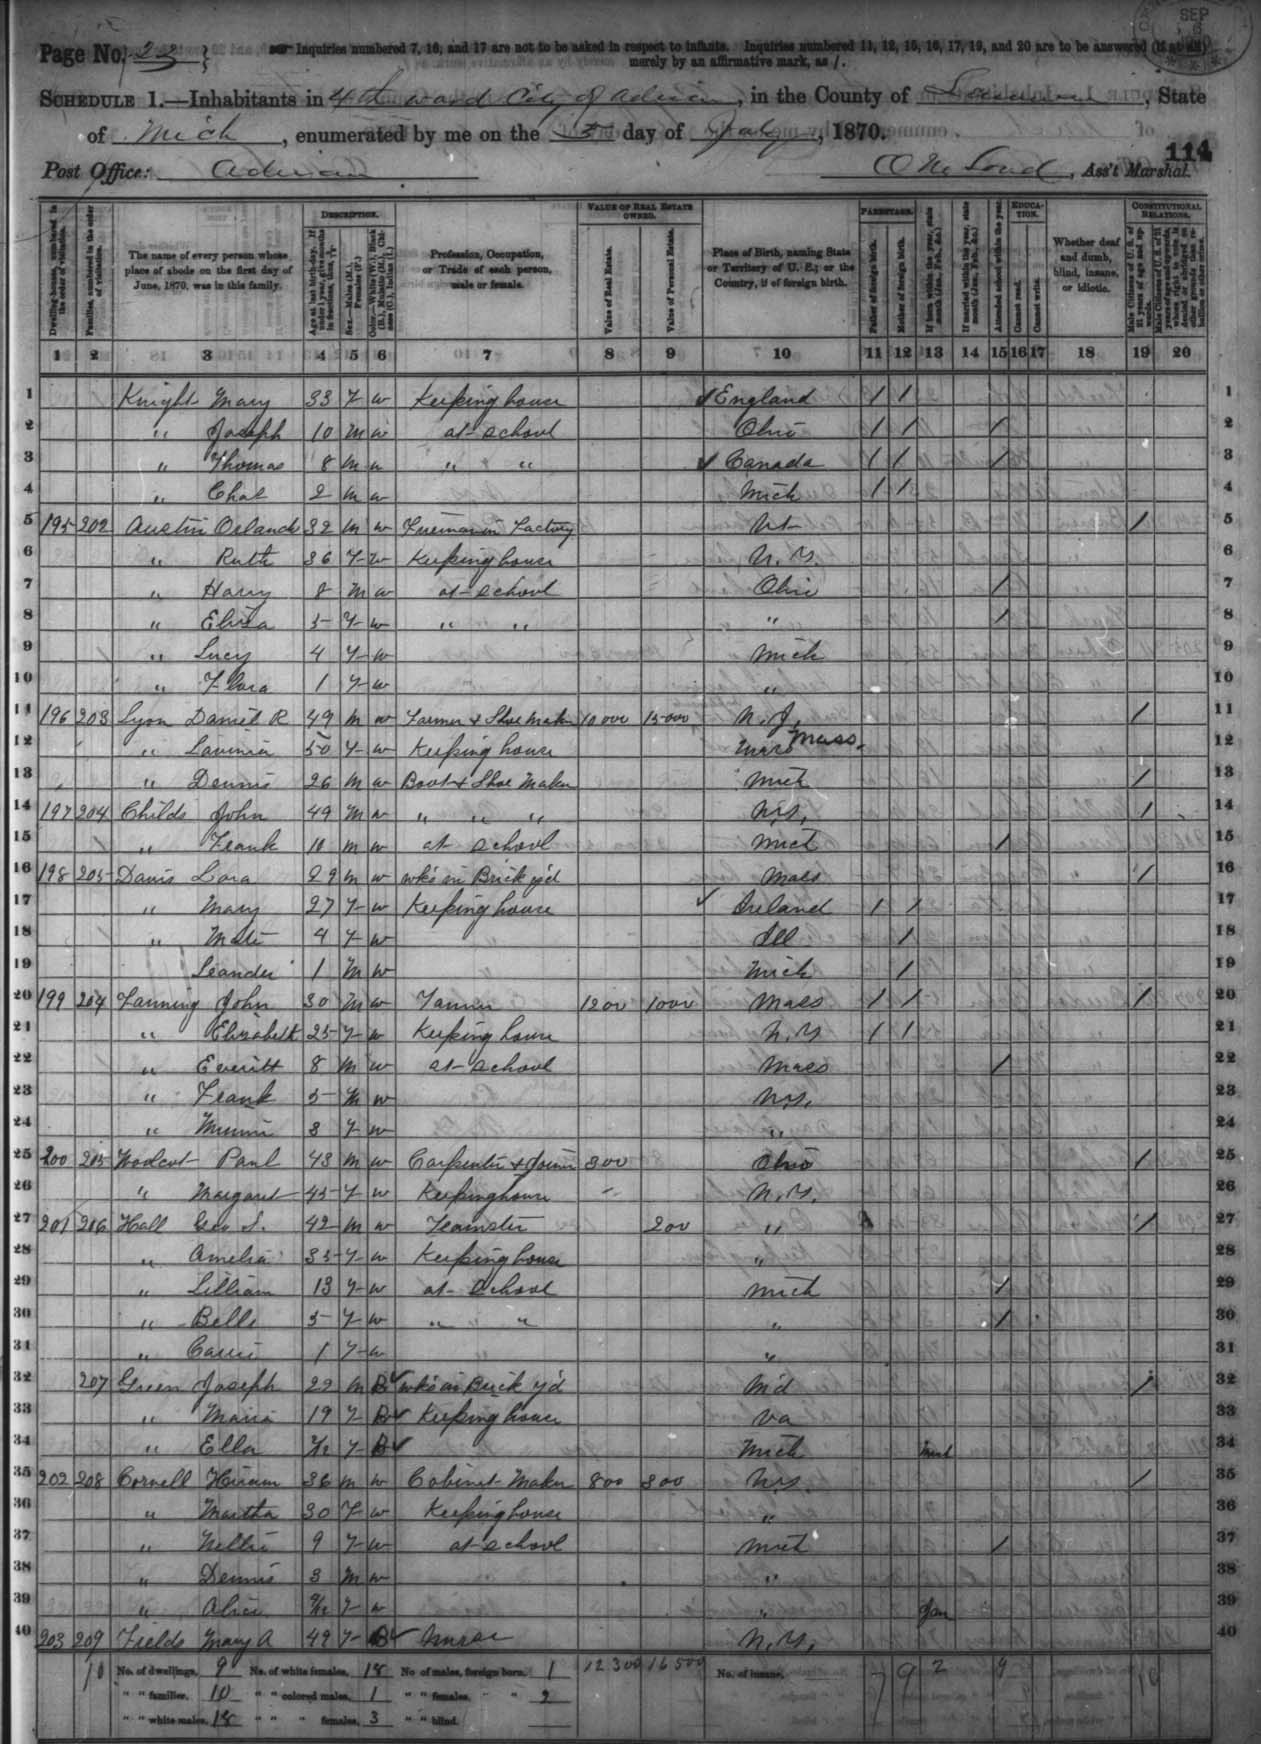 SEP 6
Page No. 23
Inquiries numbered 7, 16, and 17 are not to be asked in respect to infants. Inquiries numbered 11, 12, 15, 16, 17, 19, and 20 are to be answered (if at all)
merely by an affirmative mark, as /.
SCHEDULE 1.—Inhabitants in 4th ward City of Adrian, in the County of Lenawee, State
of Mich, enumerated by me on the 5 day of July, 1870.
114
Post Office: Adrian , Ass't Marshal.
DESCRIPTION. VALUE OF REAL ESTATE OWNED. PARENTAGE. EDUCATION. CONSTITUTIONAL RELATIONS.
Dwelling-houses, numbered in the order of visitation.
Families, numbered in the order of visitation.
The name of every person whose place of abode on the first day of June, 1870, was in this family.
Age at last birth-day. If under 1 year, give months in fractions, thus, 3/12
Sex.—Males (M.), Females (F.)
Color.—White (W.), Black (B.), Mulatto (M.), Chinese (C.), Indian (I.)
Profession, Occupation, or Trade of each person, male or female.
Value of Real Estate.
Value of Personal Estate.
Place of Birth, naming State or Territory of U. S.; or the Country, if of foreign birth.
Father of foreign birth.
Mother of foreign birth.
If born within the year, state month (Jan., Feb., &c.)
If married within the year, state month (Jan., Feb., &c.)
Attended school within the year.
Cannot read.
Cannot write.
Whether deaf and dumb, blind, insane, or idiotic.
Male Citizens of U. S. of 21 years of age and upwards.
1 2 3 4 5 6 7 8 9 10 11 12 13 14 15 16 17 18 19 20
1 Knight Mary 33 F w Keeping house ✓ England / / 1
2 " Joseph 10 M w at school Ohio / / / 2
3 " Thomas 8 M w " " ✓ Canada / / / 3
4 " Chas 2 M w Mich / / 4
5 195 202 Austin Orlando 32 M w Fireman in Factory Vt / 5
6 " Ruth 36 F w Keeping house N.Y. 6
7 " Harry 8 M w at school Ohio / 7
8 " Eliza 5 F w " " " / 8
9 " Lucy 4 F w Mich 9
10 " Flora 1 F w " 10
11 196 203 Lyon Daniel R 49 M w Farmer & Shoe Maker 10000 15000 N.J. / 11
12 " Lavinia 50 F w Keeping house Mass Mass. 12
13 " Dennis 26 M w Boot & Shoe Maker Mich / 13
14 197 204 Childs John 49 M w " " " N.Y. / 14
15 " Frank 10 M w at school Mich / 15
16 198 205 Davis Lora 29 M w wks in Brick y'd Mass / 16
17 " Mary 27 F w Keeping house ✓ Ireland / / 17
18 " 4 F w Ill / 18
19 Leander 1 M w Mich / 19
20 199 204 Fanning John 30 M w 1200 1000 Mass / / / 20
21 " Elizabeth 25 F w Keeping house N.Y / / 21
22 " Everitt 8 M w at school Mass / 22
23 " Frank 5 M w N.Y. 23
24 " Minnie 3 F w " 24
25 200 205 Woolcot Paul 43 M w Carpenter & Joiner 300 Ohio / 25
26 " Margaret 45 F w Keeping house N.Y. 26
27 201 206 Hall Geo S. 42 M w Teamster 200 " / 27
28 " Amelia 35 F w Keeping house " 28
29 " Lillian 13 F w at school Mich / 29
30 " Belle 5 F w " " " " / 30
31 " Carrie 1 F w " 31
32 207 Green Joseph 22 M B ✓ wks in Brick y'd Md / 32
33 " Maria 19 F B ✓ Keeping house Va 33
34 " Ella F B ✓ Mich 34
35 202 208 Cornell Hiram 36 M w Cabinet Maker 800 300 N.Y. / 35
36 " Martha 30 F w Keeping house " 36
37 " Nellie 9 F w at school Mich / 37
38 " Dennis 3 M w " 38
39 " Alice F w " Jan 39
40 203 209 Fields Mary A 49 F B ✓ Nurse N.Y. 40
10 No. of dwellings, 9 No. of white females, 18 No of males, foreign born, 1 12300 16500 No. of insane, 7 9 2 9 10
" " families, 10 " " colored males, 1 " " females, " " 2
" " white males, 18 " " " females, 3 " " blind.